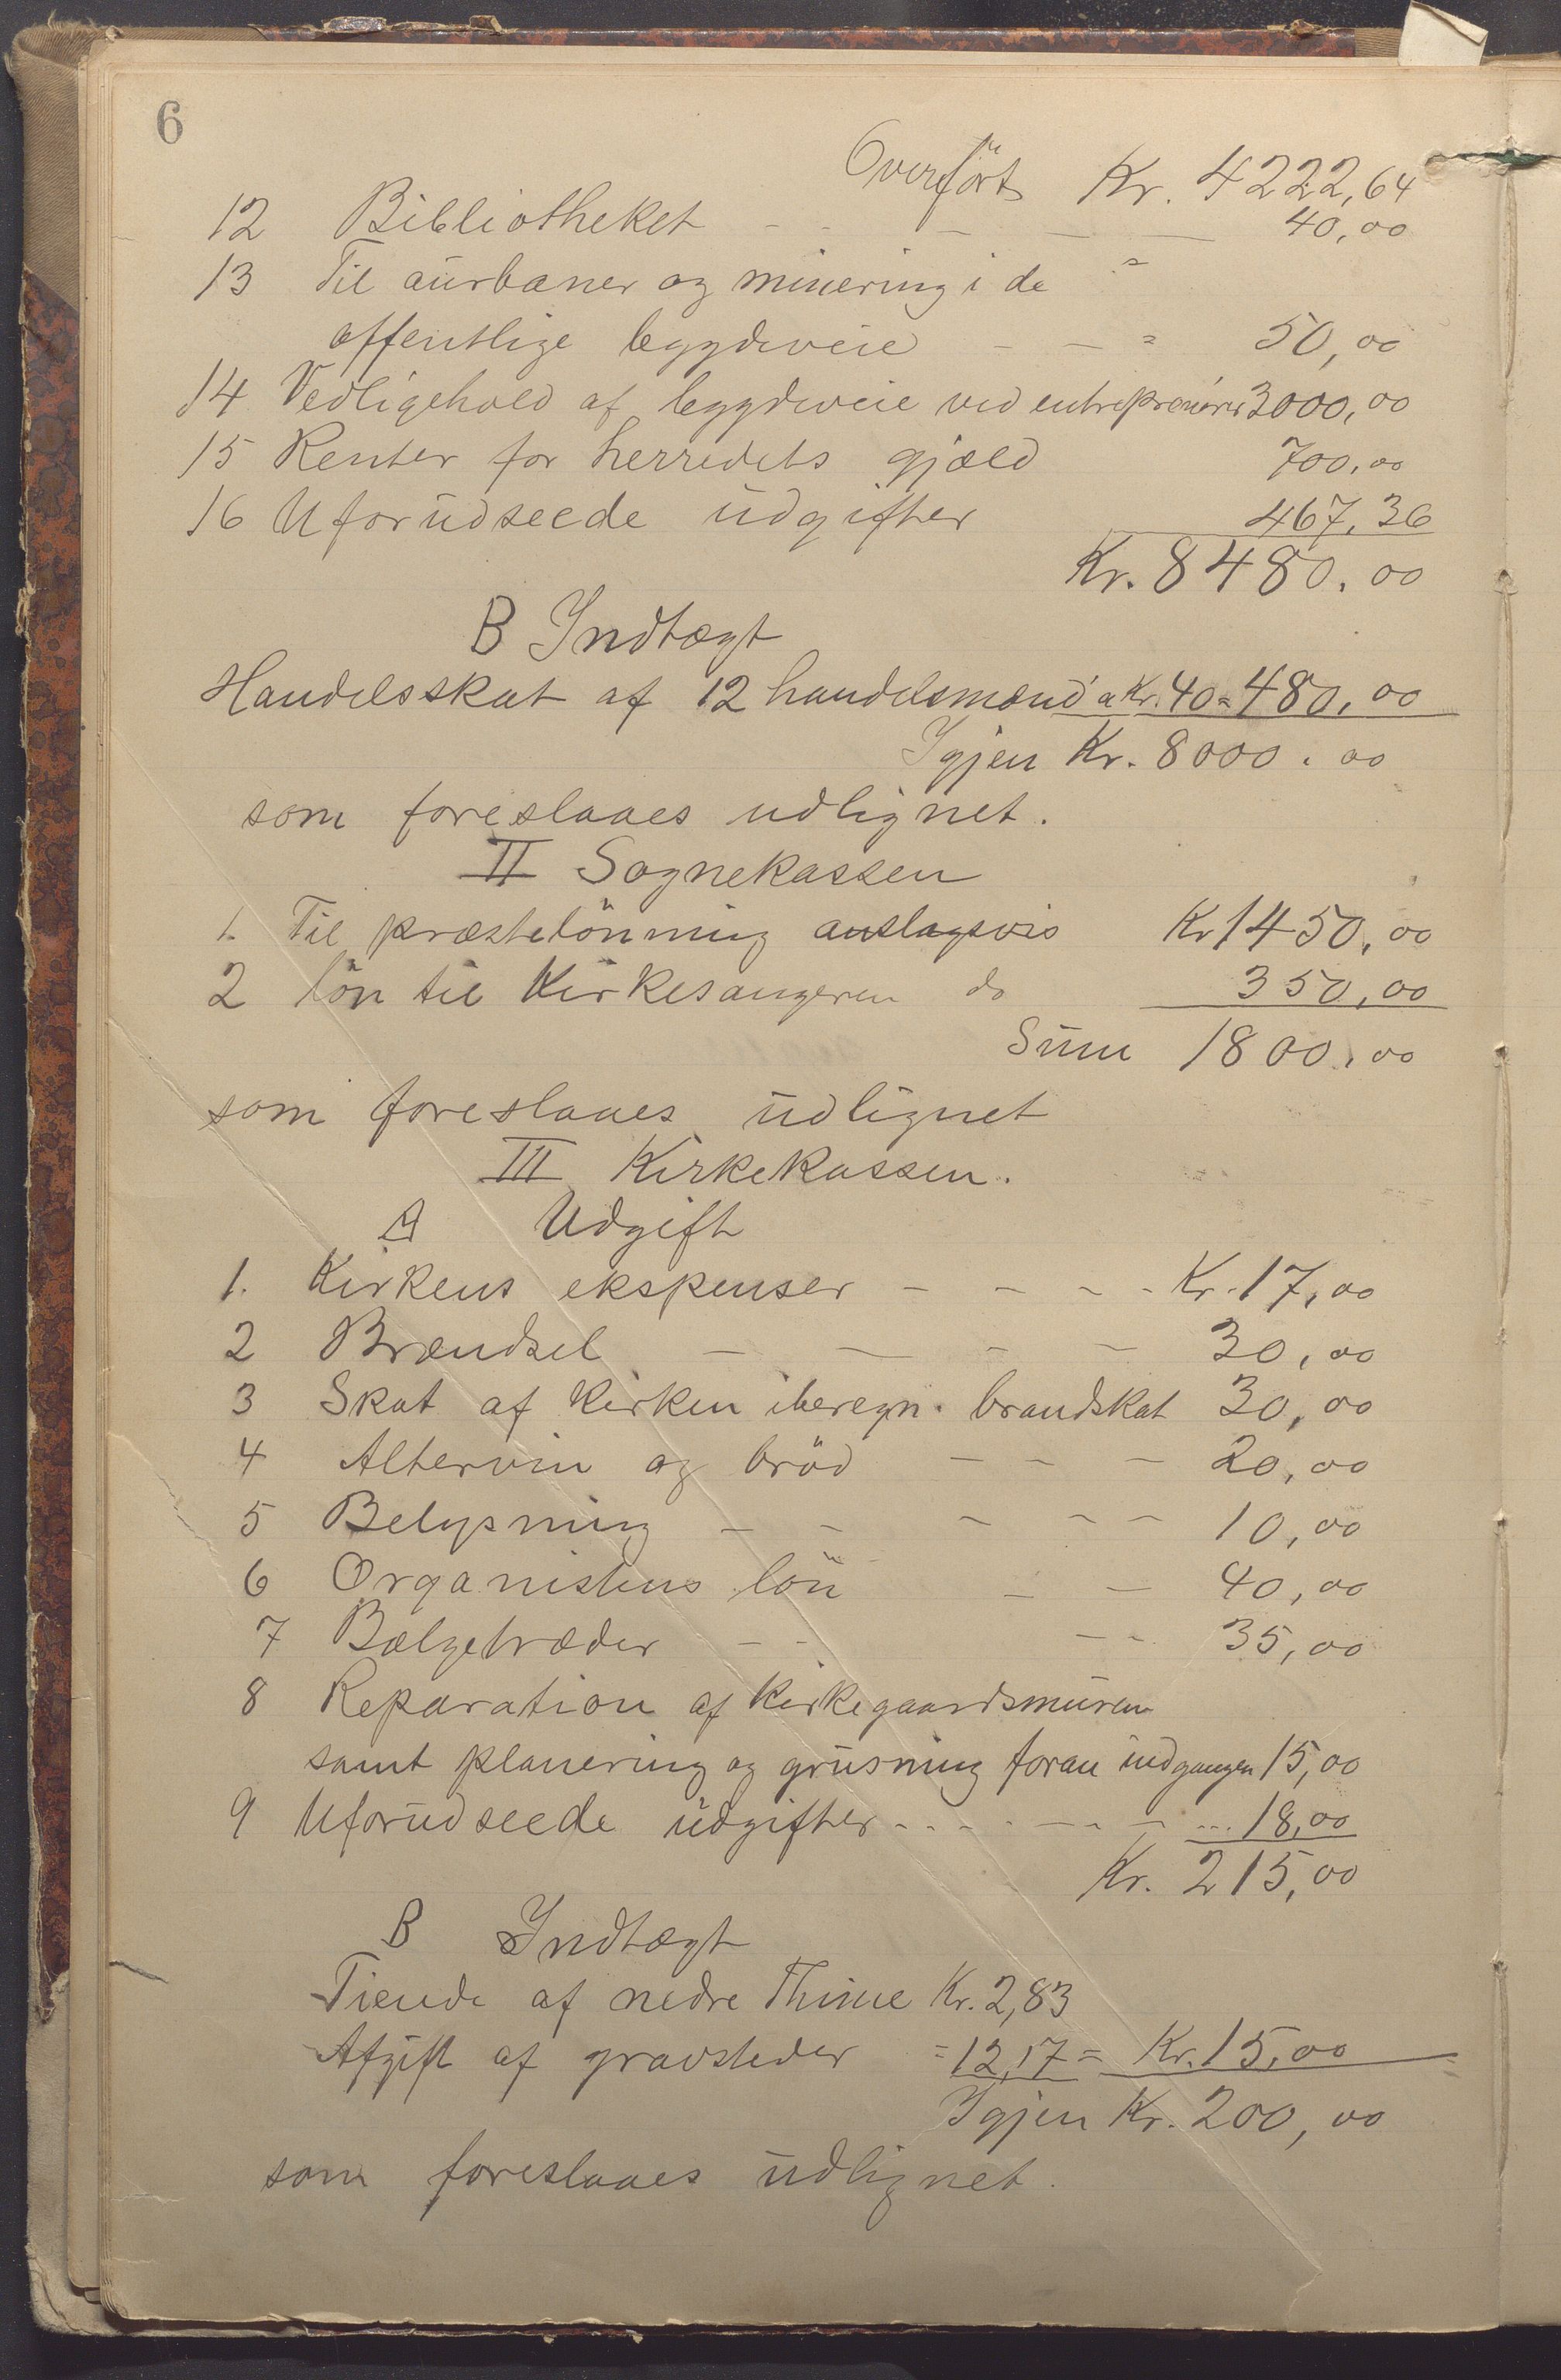 6
Overført Kr. 4222,64
12 Bibliotheket - - - - - 40,00
13 Til aurbaner og minering i de "
offentlige bygdeveie - - " 50,00
14 Vedligehold af bygdeveie ved entreprenører 3000,00
15 Renter for herredets gjæld 700,00
16 Uforudseede udgifter 467,36
Kr. 8480,00
B Indtægt
Handelsskat af 12 handelsmænd a Kr. 40 = 480,00
Igjen Kr. 8000,00
som foreslaaes udlignet.
II Sognekassen
1. Til præstelönning anslagsvis Kr 1450,00
2 lön til Kirkesangeren do 350,00
Sum 1800,00
som foreslaaes udlignet
III Kirkekassen.
A Udgift
1. Kirkens ekspenser - - - - Kr. 17,00
2 Brændsel - - - - 30,00
3 Skat af kirken iberegn. brandskat 30,00
4 Altervin og bröd - - - 20,00
5 Belysning - - - - - 10,00
6 Organistens lön - - 40,00
7 Bælgetræder - - - - 35,00
8 Reparation af kirkegaardsmuren
samt planering og grusning foran indgangen 15,00
9 Uforudseede udgifter - - - - - - - ... 18,00
Kr. 215,00
B Indtægt
Tiende af nedre Thime Kr. 2,83
Afgift af gravsteder = 12,17 = Kr. 15,00
Igjen Kr. 200,00
som foreslaaes udlignet.